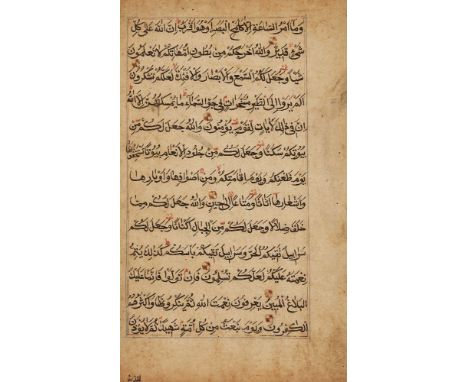 وما امر الساعة الا كلمح البصر او هو اقرب ان الله على كل
شيء قدير والله اخرجكم من بطون امهاتكم لا تعلمون
شيئا وجعل لكم السمع والابصار والافئدة لعلكم تشكرون
الم يروا الى الطير مسخرات في جو السماء ما يمسكهن الا الله
ان في ذلك لايات لقوم يؤمنون والله جعل لكم من
بيوتكم سكنا وجعل لكم من جلود الانعام بيوتا تستخفونها
يوم ظعنكم ويوم اقامتكم ومن اصوافها واوبارها
واشعارها اثاثا ومتاعا الى حين والله جعل لكم مما
خلق ظلالا وجعل لكم من الجبال اكنانا وجعل لكم
سرابيل تقيكم الحر وسرابيل تقيكم باسكم كذلك يتم
نعمته عليكم لعلكم تسلمون فان تولوا فانما عليك
البلاغ المبين يعرفون نعمت الله ثم ينكرونها واكثرهم
الكفرون ويوم نبعث من كل امة شهيدا ثم لا يؤذن